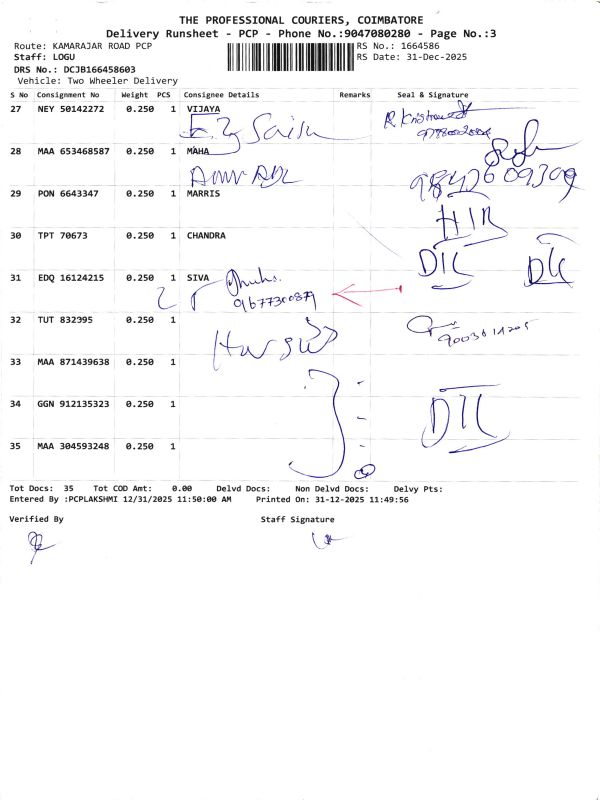 THE PROFESSIONAL COURIERS, COIMBATORE
Delivery Runsheet - PCP - Phone No.:9047080280 - Page No.:3
Route: KAMARAJAR ROAD PCP
RS No.: 1664586
Staff: LOGU
RS Date: 31-Dec-2025
DRS No.: DCJB166458603
Vehicle: Two Wheeler Delivery
S No Consignment No Weight PCS Consignee Details Remarks Seal & Signature
27 NEY 50142272 0.250 1 VIJAYA
28 MAA 653468587 0.250 1 MAHA
9842609309
29 PON 6643347 0.250 1 MARRIS
30 TPT 70673 0.250 1 CHANDRA
31 EDQ 16124215 0.250 1 SIVA
32 TUT 832995 0.250 1
33 MAA 871439638 0.250 1
34 GGN 912135323 0.250 1
35 MAA 304593248 0.250 1
Tot Docs: 35 Tot COD Amt: 0.00 Delvd Docs: Non Delvd Docs: Delvy Pts:
Entered By :PCPLAKSHMI 12/31/2025 11:50:00 AM Printed On: 31-12-2025 11:49:56
Verified By Staff Signature